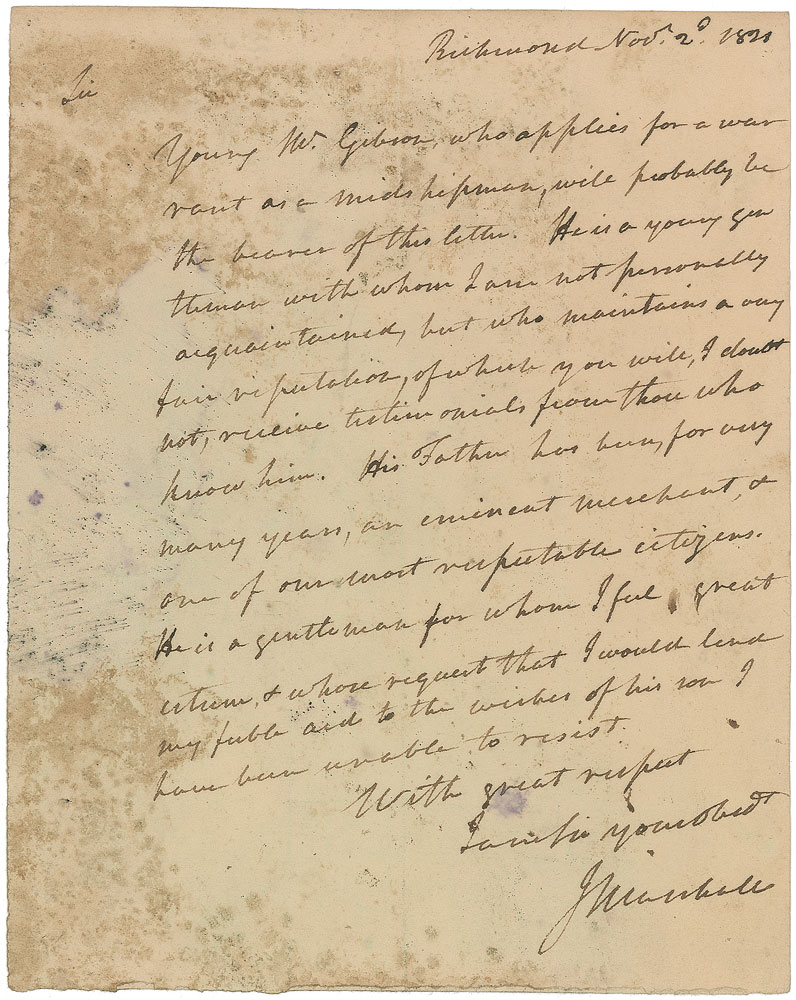 Richmond Novr. 2d. 1821
Sir
Young Mr. Gibson, who applies for a war
rant as a midshipman, will probably be
the bearer of this letter. He is a young gen
tleman with whom I am not personally
acquaintained, but who maintains a very
fair reputation, of which you will, I doubt
not, receive testimonials from those who
know him. His Father has been, for very
many years, an eminent merchant, &
one of our most respectable citizens.
He is a gentleman for whom I feel great
esteem, & whose request that I would lend
my feeble aid to the wishes of his son I
have been unable to resist.
With great respect
I am Sir your obedt
J Marshall